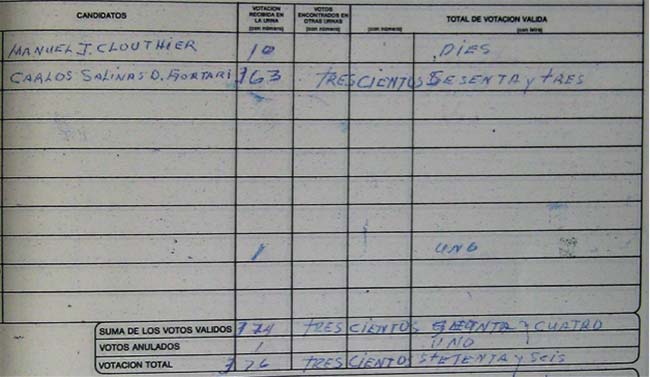 CANDIDATOS VOTACION RECIBIDA EN LA URNA (con número) VOTOS ENCONTRADOS EN OTRAS URNAS (con número) TOTAL DE VOTACION VALIDA (con número) (con letra)
MANUEL J. CLOUTHIER 10 DIES
CARLOS SALINAS D. GORTARI 363 TRESCIENTOS SESENTA y TRES
1 UNO
SUMA DE LOS VOTOS VALIDOS 374 TRES CIENTOS y CUATRO
VOTOS ANULADOS 1 UNO
VOTACION TOTAL 376 TRES CIENTOS SETENTA y SEIS